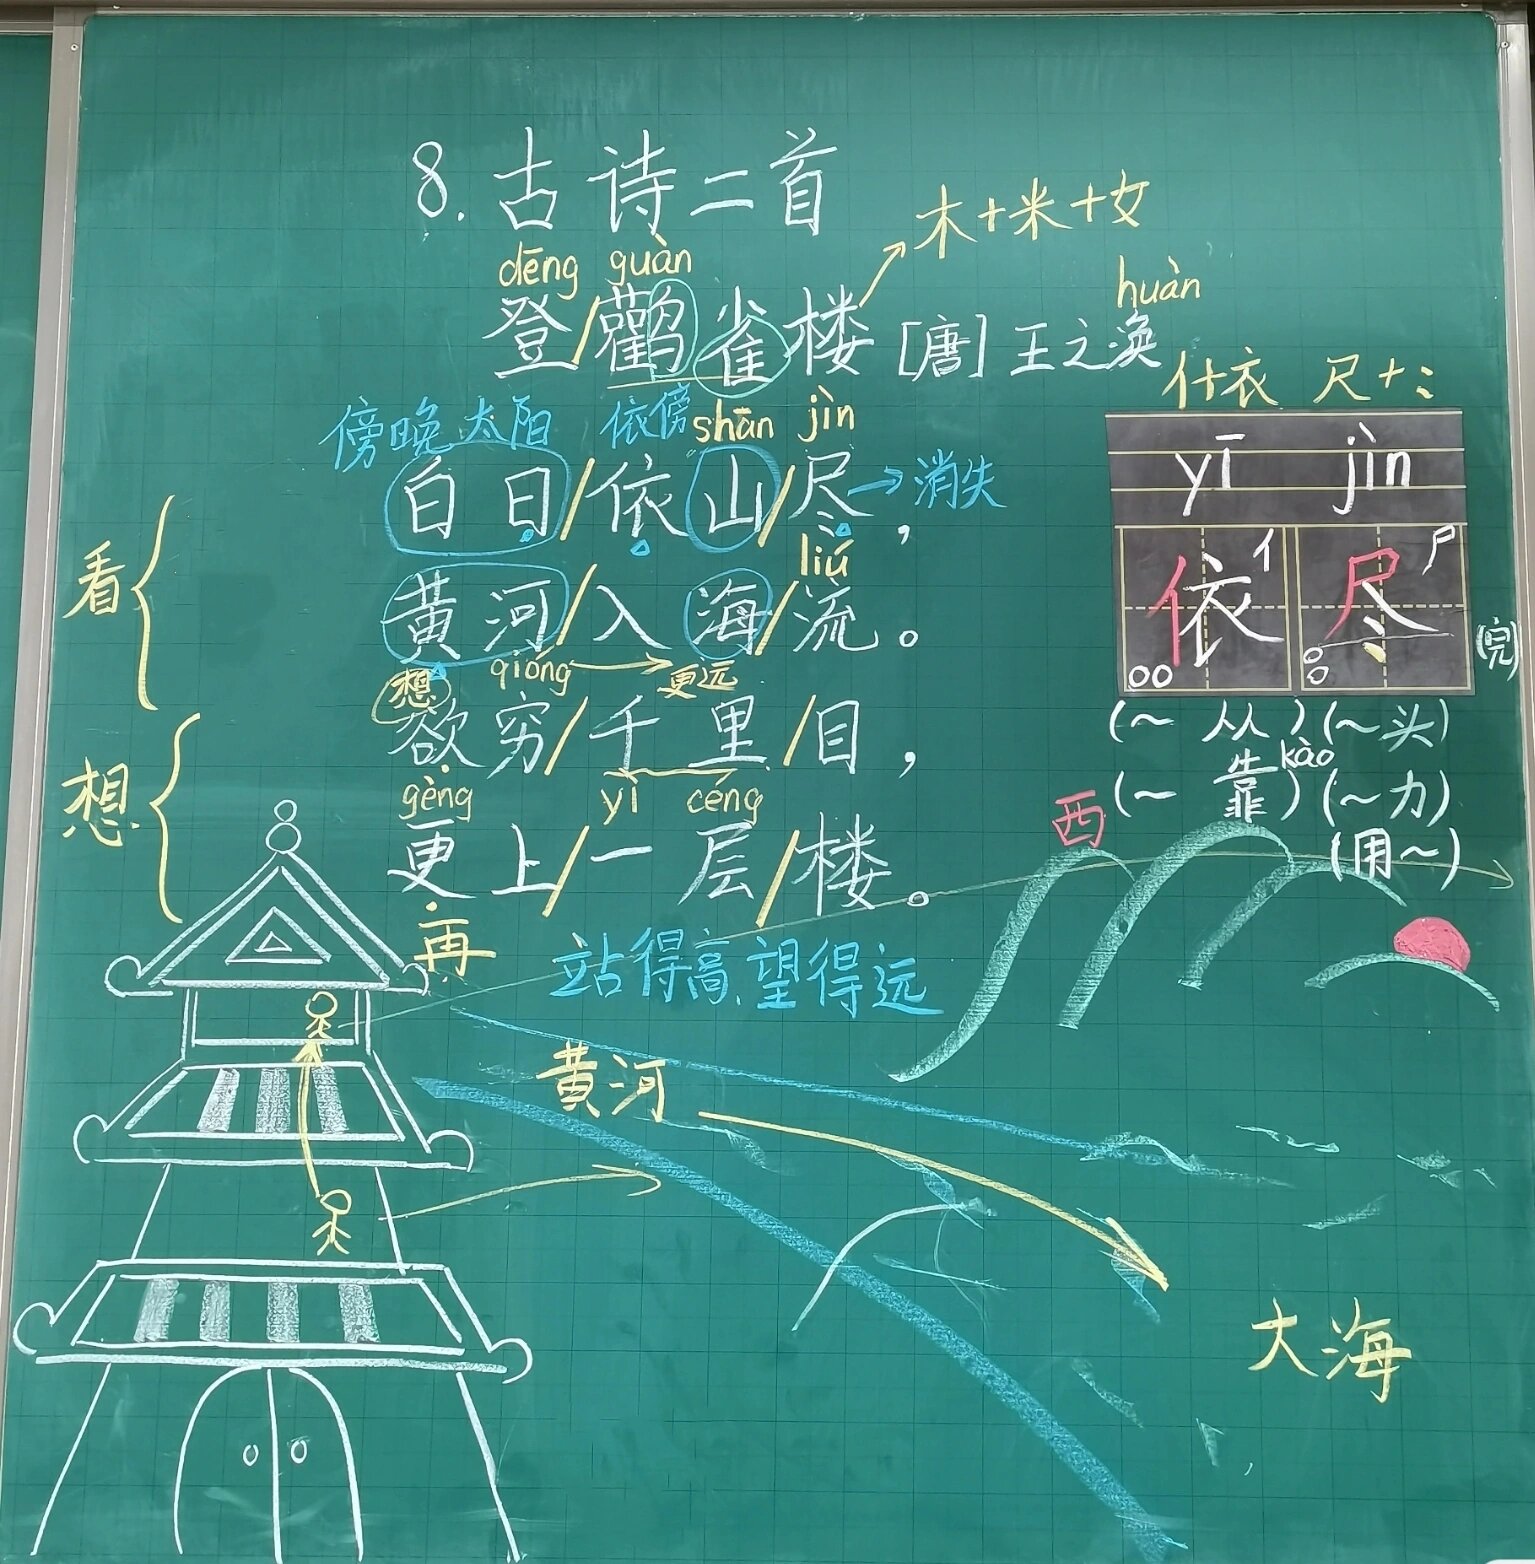 8.古诗二首
木+米+女
dēng guàn
huàn
登/鹳雀楼[唐]王之涣
亻+衣 尺+⺀
傍晚 太阳 依傍 shān jìn
白日/依山/尽→消失,
yī jìn
看
liú
黄河/入海/流。
依 亻 尽 尸
(完)
想 qióng 更远
欲穷/千里/目,
(~从)(~头)
kào
(~靠)(~力)
(用~)
想
gèng yì céng
更上/一层/楼。
西
再
站得高,望得远
黄河
大海